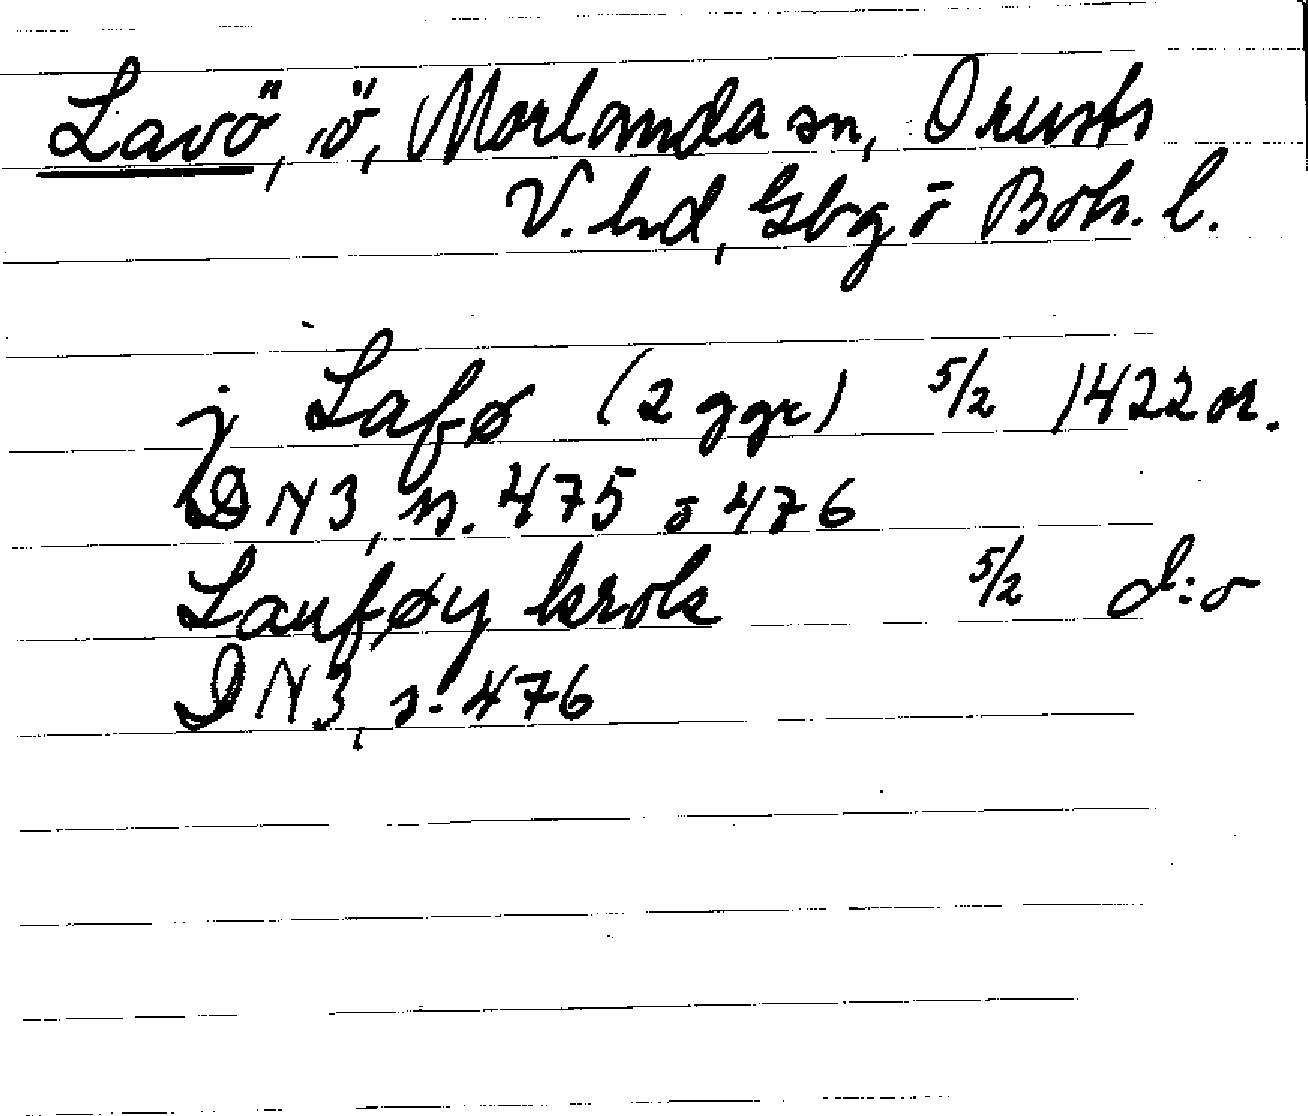 Lavö, ö, Morlanda sn, Orusts
V. hd, Gbg o Boh. l.
j Lafø (2 ggr) 5/2 1422 or.
DN 3, s. 475 o 476
Lauføy krok 5/2 d:o
DN 3, s. 476